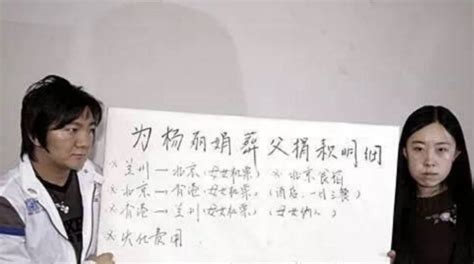 为杨丽娟葬父捐款明细
※兰州一北京(母女机票) ※北京食宿
※北京一香港(母女机票)(酒店、一日三餐)
※香港一兰州(母女机票)(母女俩人)
※火化费用